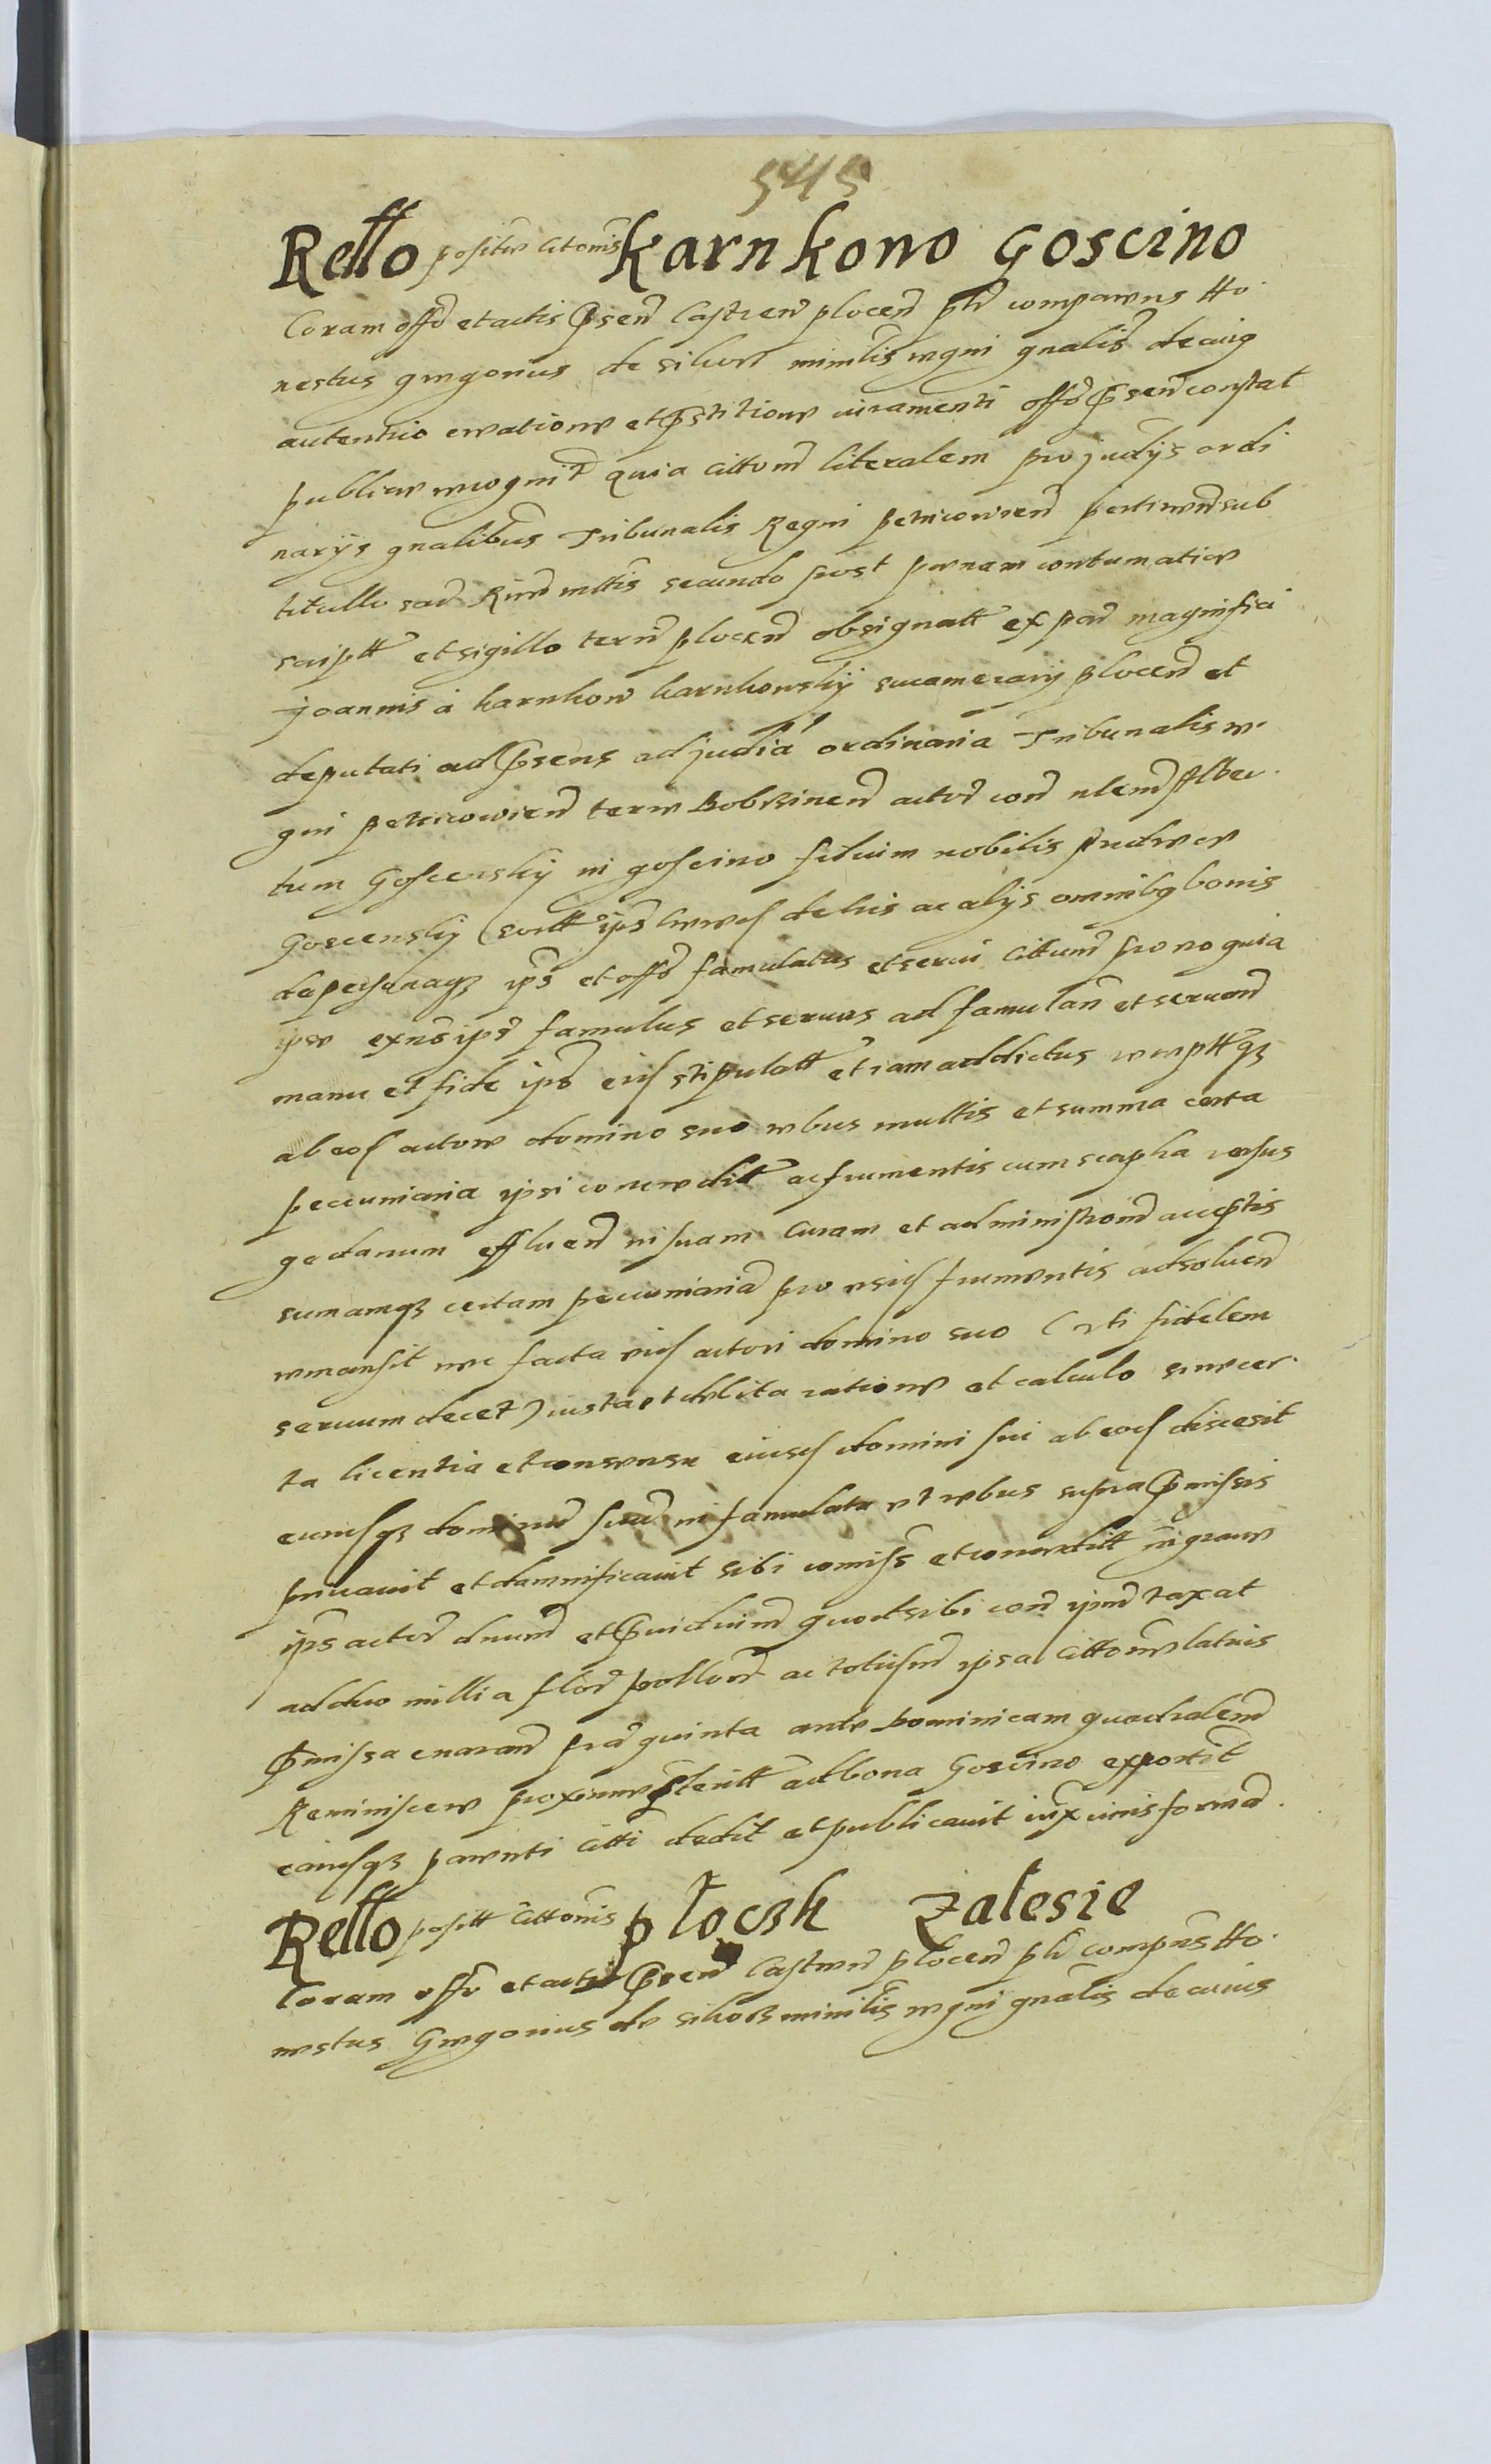 545
Rello positae citonis Karnkowo Goscino
Coram offo et actis Psen Castren plocen plr comparens Ho
nestus gregorius de sikorz minrlis regni gnalis de cuig
autentico creationis et Pstitione iuramenti offo Psen constat
publice recognit quia cittom literalem pro judiys ordi
narijs gnalibus Tribunalis Regni petricovien pertinen sub
titullo sac Regie mttis secundo post penam contumatiae
scriptt et sigillo terre plocen obsignatt ex par magnifici
Joannis a karnkow karnkowskÿ succamerarij plocen et
deputati ad Psens ad judicia ordinaria Tribunalis re
gni petricovien terre Dobrzinen actor con nlem Alber
tum Goscenskÿ in goscino filium nobilis Andreae
Goscenskÿ de his ac alijs omnibg bonis
de personaqz ips et offo famulatus et serui cittum pro eo quia
ipse exns ips famulus et seruus ad famulan et seruen
manu et fide ipso eid stipulatt et iam addictus receptt qz
ab eod actore domino suo rebus multis et summa certa
peccuniaria ipsi concredit ac frumentis cum scapha versus
gedanum effluen in suam curam et administrom acceptis
sumamqz certam peccuniaria pro eisd frumentis adsoluen
remansit nec facta eid actori domino suo (vti fidelem
seruum decet) iusta et debita ratione et calculo sine cer
ta licentia et consensu eiusd domini sui ab eod discesit
eumsqz dominu suu in famulatu et rebus supra Pmissis
priuauit et damnificauit sibi comiss et concreditt in graue
ips actor dnum et Piudicium quod sibi con ipm taxat
ad duo millia flor pollor ac totiusm ipsa citone latius
Pmissa enaran fra quinta ante Dominicam quadralem
Reminiscere proxime Pteritt ad bona Goscino exportit
eaiusqz parenti citti dedit et publicauit iux iuris forma.
Rello positt cittonis ploczk Zalesie
Coram offo et actis Psen Castren plocen plr compns Ho
nestus Gregorius de sikorz minrlis regni gnalis de cuius